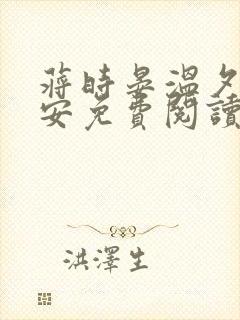 蔣時晏溫夕
安免費閱讀
洪澤生